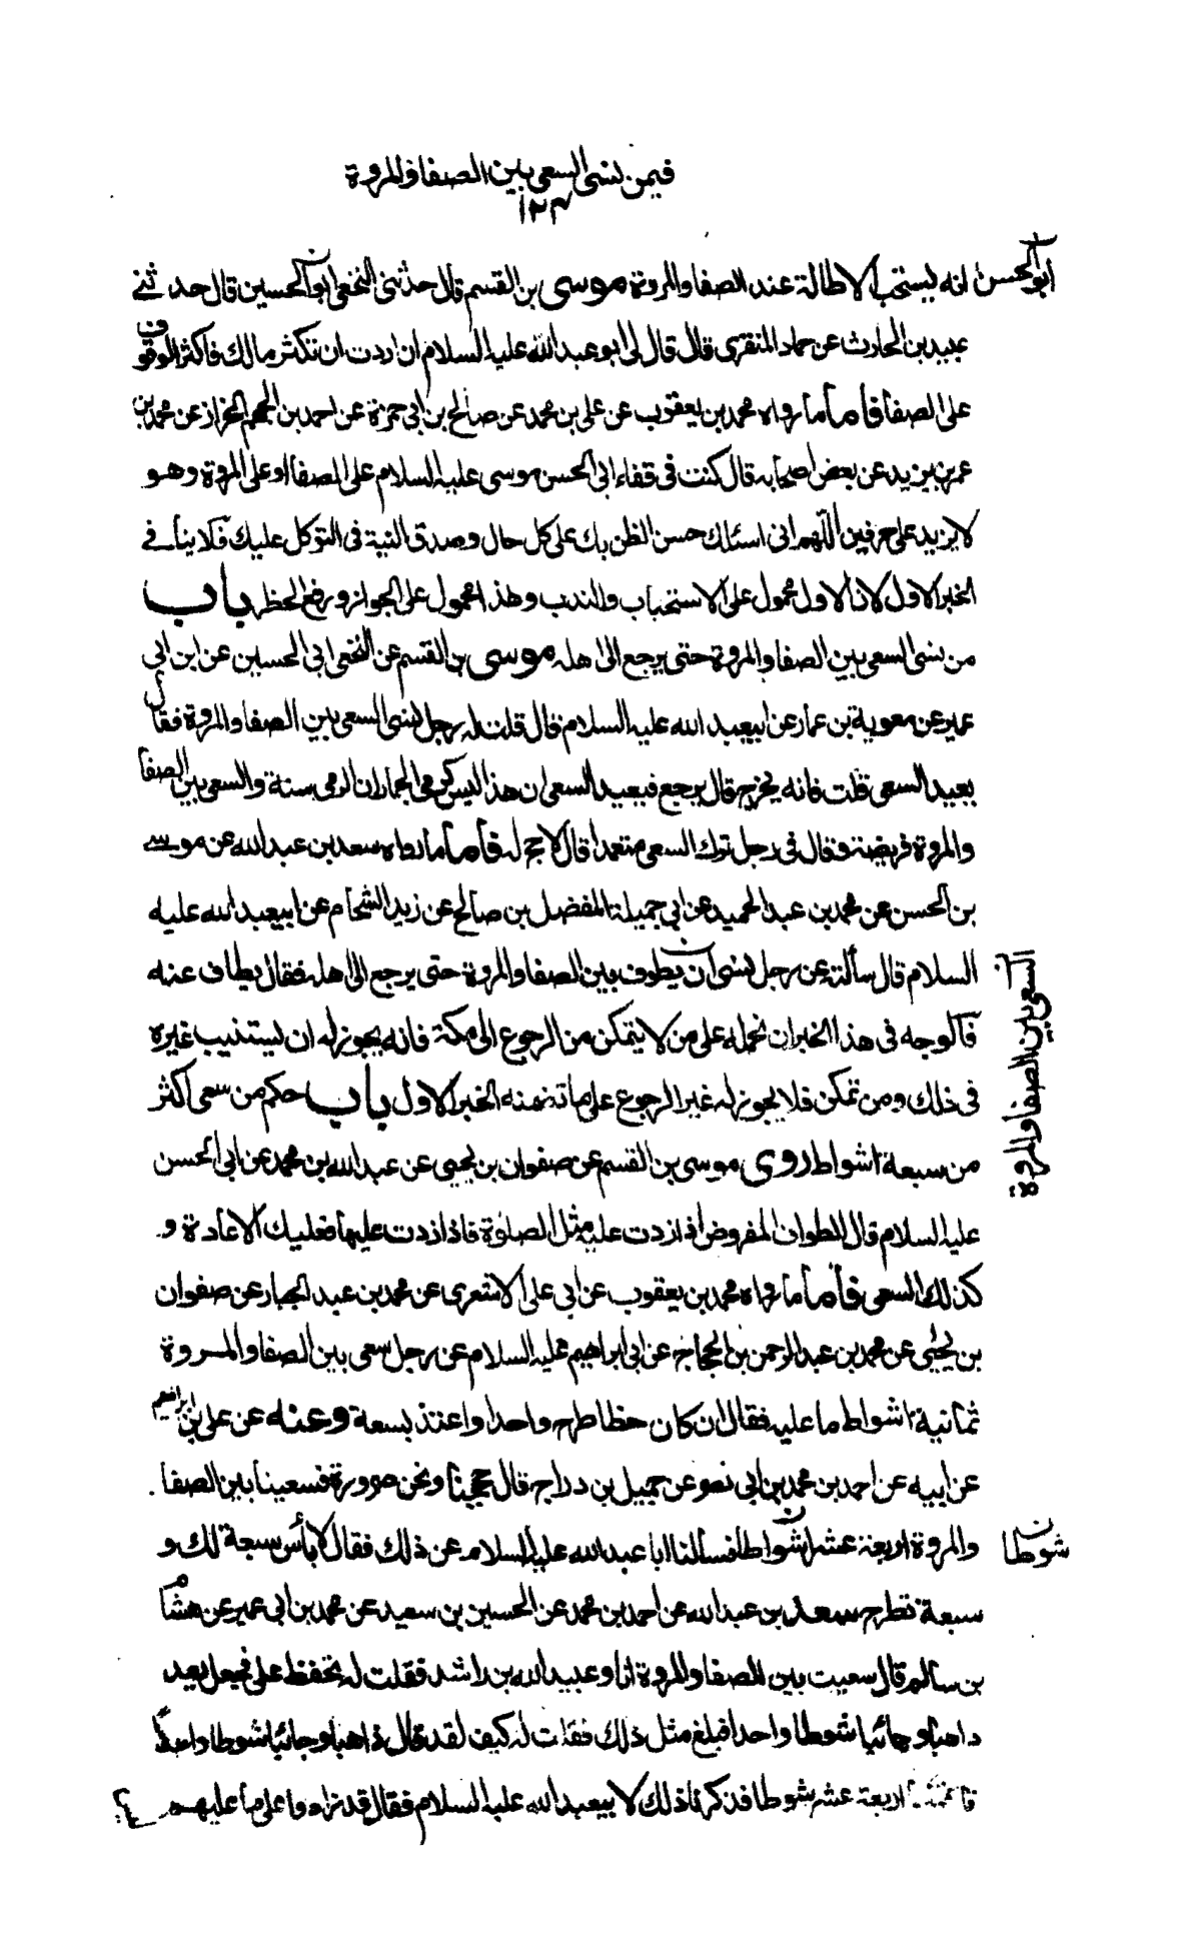 فيمن نسى السعى بين الصفا والمروة
١٢٣
ابو الحسن انه يستحب الاطالة عند الصفا والمروة موسى بن القسم قال حدثنى النخعى ابو الحسين قال حدثنى
عبيد بن الحارث عن حماد المنقرى قال قال لى ابو عبد الله عليه السلام ان اردت ان تكثر مالك فاكثر الوقوف
على الصفا فاما ما رواه محمد بن يعقوب عن على بن محمد عن صالح بن ابى حمزة عن احمد بن الجهم الخزاز عن محمد بن
عمر بن يزيد عن بعض اصحابه قال كنت فى قفاء ابى الحسن موسى عليه السلام على الصفا او على المروة وهو
لا يزيد على حرفين اللهم انى اسئلك حسن الظن بك على كل حال وصدق النية فى التوكل عليك فلا ينافى
الخبر الاول لان الاول محمول على الاستحباب والندب وهذا محمول على الجواز ورفع الحظر باب
من نسى السعى بين الصفا والمروة حتى يرجع الى اهله موسى بن القسم عن النخعى ابى الحسين عن ابن ابى
عمير عن معوية بن عمار عن ابيعبد الله عليه السلام قال قلت له رجل نسى السعى بين الصفا والمروة فقال
يعيد السعى قلت فانه يخرج قال يرجع فيعيد السعى ان هذا ليس كرمى الجمار ان الرمى سنة والسعى بين الصفا
والمروة فريضة وقال فى رجل ترك السعى متعمدا قال لا حج له فاما ما رواه سعد بن عبد الله عن موسى
بن الحسن عن محمد بن عبد الحميد عن ابى جميلة المفضل بن صالح عن زيد الشحام عن ابيعبد الله عليه
السلام قال سألته عن رجل نسى ان يطوف بين الصفا والمروة حتى يرجع الى اهله فقال يطاف عنه
فالوجه فى هذا الخبر ان نحمله على من لا يتمكن من الرجوع الى مكة فانه يجوز له ان يستنيب غيره
فى ذلك ومن تمكن فلا يجوز له غير الرجوع على ما تضمنه الخبر الاول باب حكم من سعى اكثر
من سبعة اشواط روى موسى بن القسم عن صفوان بن يحيى عن عبد الله بن محمد عن ابى الحسن
عليه السلام قال الطواف المفروض اذا زدت عليه مثل الصلوة فاذا زدت عليها فعليك الاعادة و
كذلك السعى فاما ما رواه محمد بن يعقوب عن ابى على الاشعرى عن محمد بن عبد الجبار عن صفوان
بن يحيى عن محمد بن عبد الرحمن بن الحجاج عن ابى ابراهيم عليه السلام عن رجل سعى بين الصفا والمروة
ثمانية اشواط ما عليه فقال ان كان خطا طرح واحدا واعتد بسعة وعنه عن على بن ابراهيم
عن ابيه عن احمد بن محمد بن ابى نصر عن جميل بن دراج قال حججنا ونحن صرورة فسعينا بين الصفا
والمروة اربعة عشر اشواطا فسألنا ابا عبد الله عليه السلام عن ذلك فقال لا بأس سبعة لك و
سبعة تطرح سعد بن عبد الله عن احمد بن محمد عن الحسين بن سعيد عن محمد بن ابى عمير عن هشام
بن سالم قال سعيت بين الصفا والمروة انا وعبيد الله بن راشد فقلت له تحفظ على فجعل يعد
ذاهبا وجائيا شوطا واحدا فبلغ مثل ذلك فقلت له كيف تعد قال ذاهبا وجائيا شوطا واحدا
اربعة عشر شوطا فذكرنا ذلك لابيعبد الله عليه السلام فقال قد زادوا على ما عليهم
السعى بين الصفا والمروة
شوطا